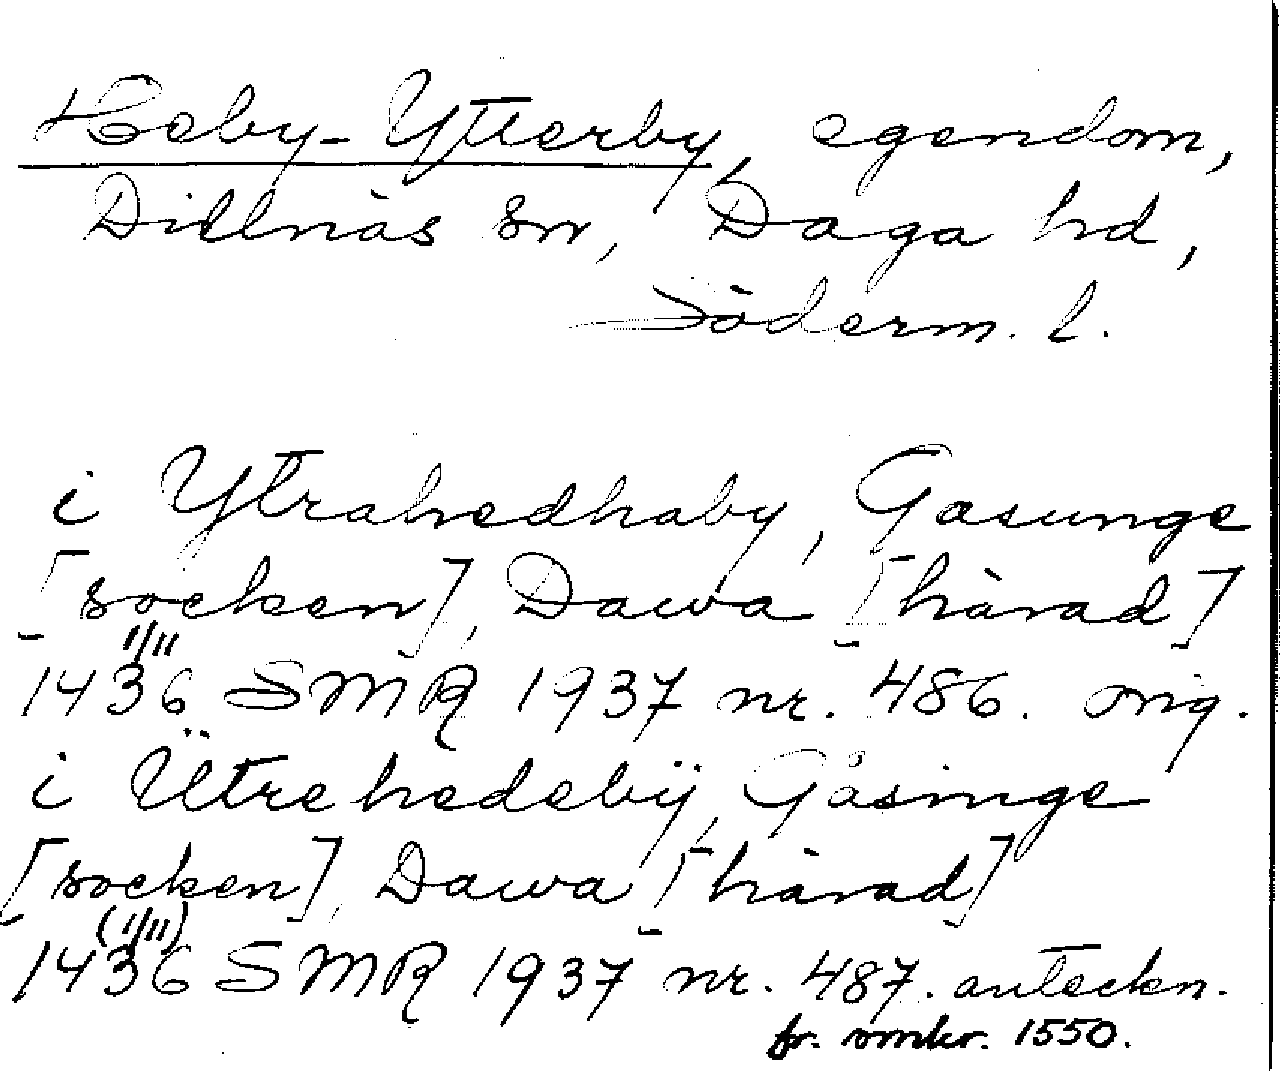 Heby-Ytterby, egendom,
Dillnäs sn, Daga hd,
Söderm. l.
i Ytrahedhaby, Gasunge
[socken], Dawa [härad]
11/11
1436 SMR 1937 nr. 486. orig.
i Ütrehedebÿ, Gåsinge
[socken], Dawa [härad]
(11/11)
1436 SMR 1937 nr. 487. anteckn.
fr. omkr. 1550.